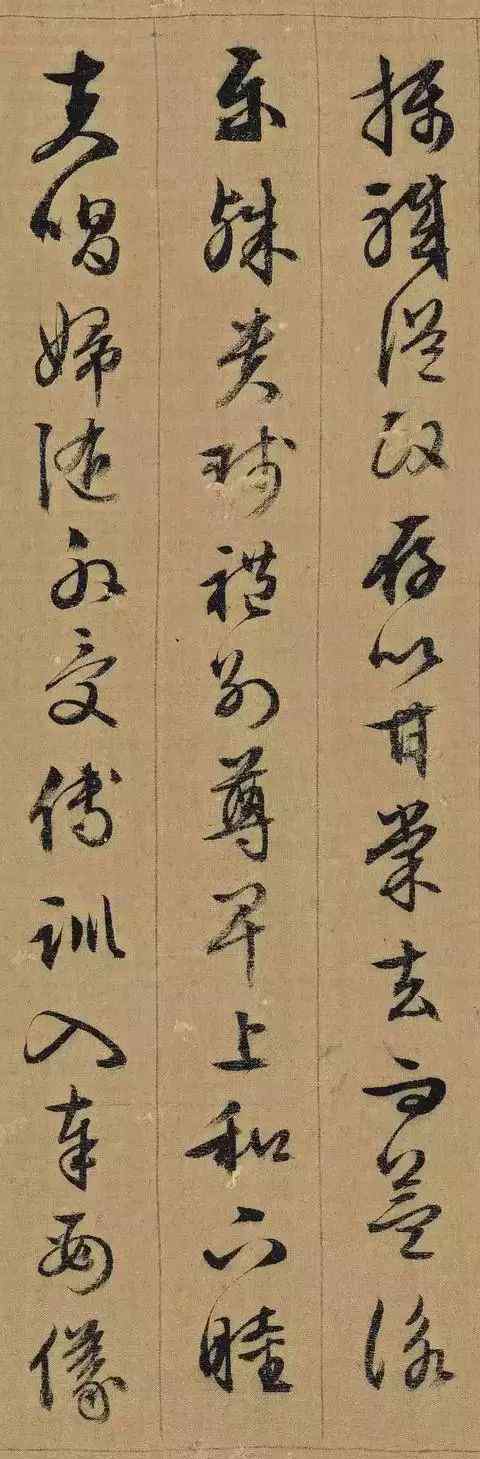 攝職從政存以甘棠去而益詠
樂殊貴賤禮別尊卑上和下睦
夫唱婦隨外受傅訓入奉母儀